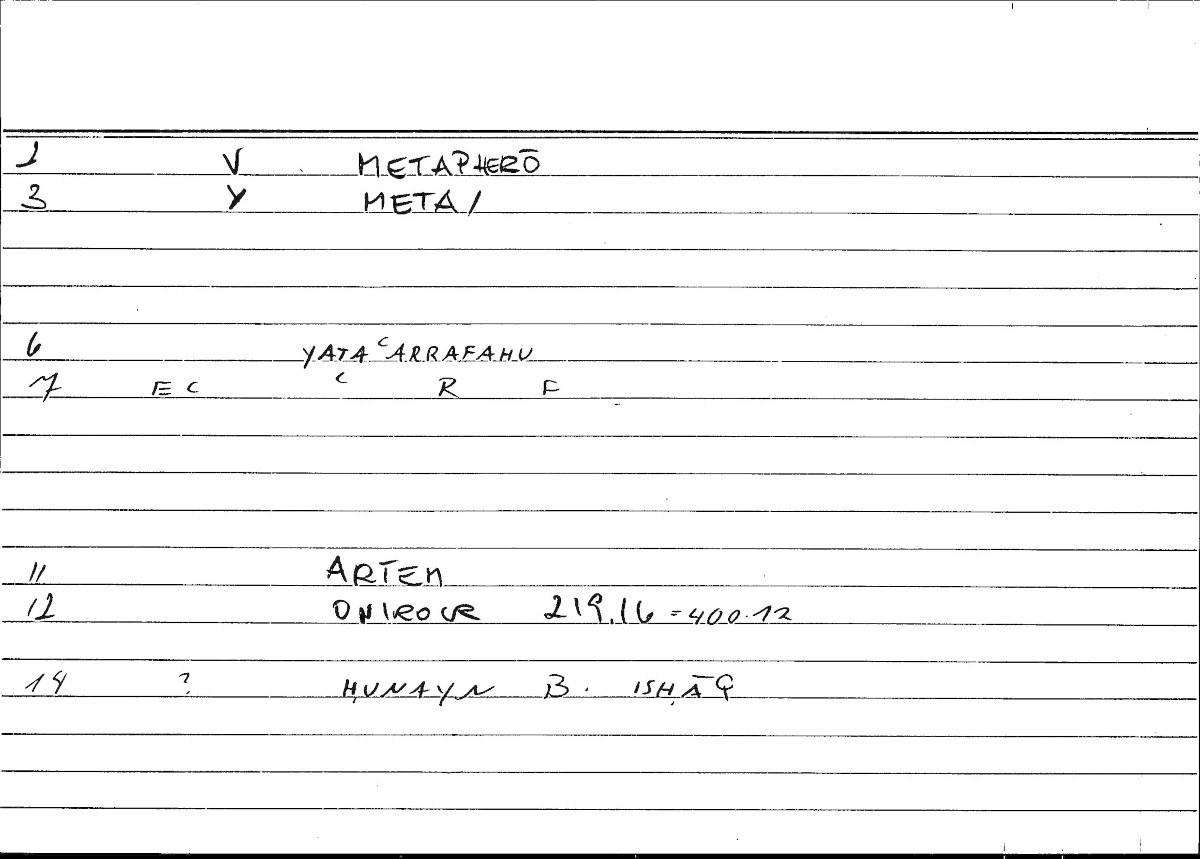 1 V METAPHERŌ
3 Y META/
6 YATAʿARRAFAHU
7 EC ʿ R F
11 ARTEM
12 ONIROCR 219.16 = 400.12
14 ? ḤUNAYN B. ISḤĀQ